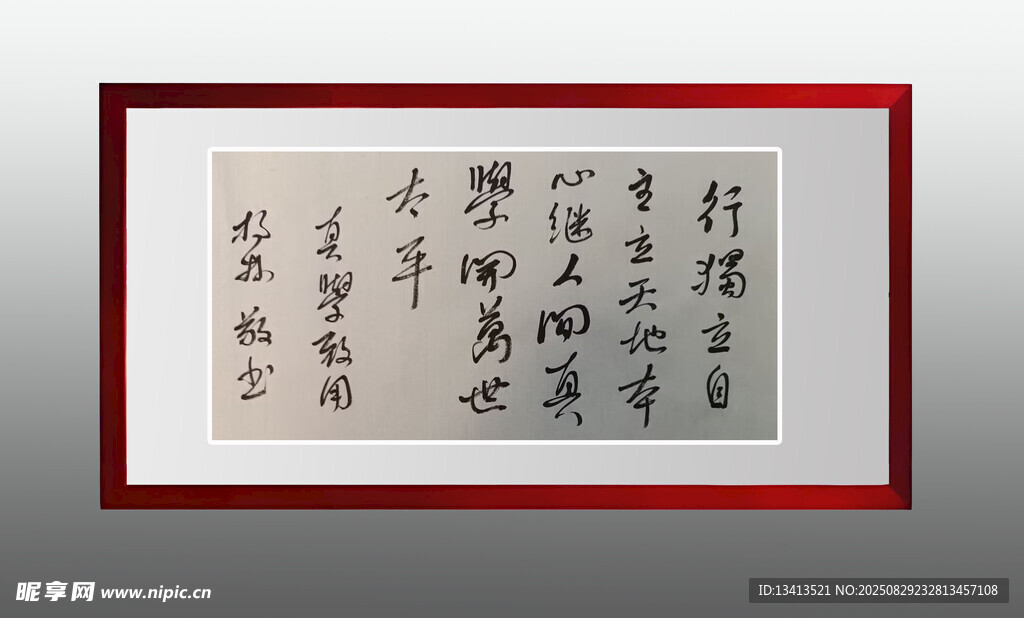 行獨立自
主立天地本
心继人间真
學開萬世
太平
真學致用
楊林敬书
昵享网 www.nipic.cn
ID:13413521 NO:20250829232813457108